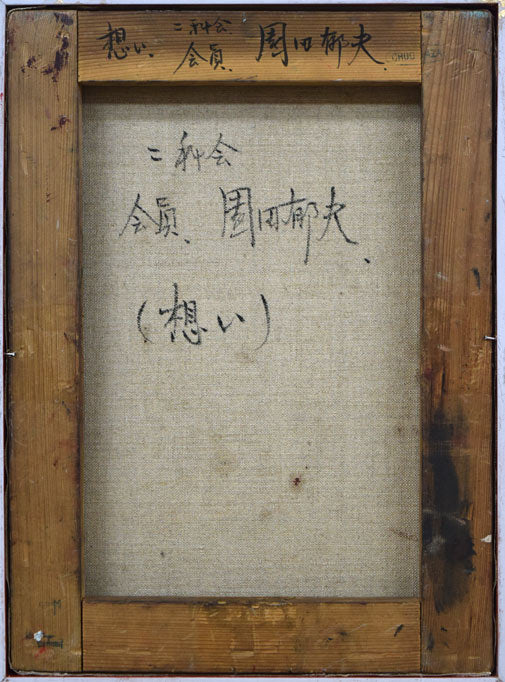 想い、二科会会員、園田郁夫、
二科会
会員、園田郁夫、
(想い)